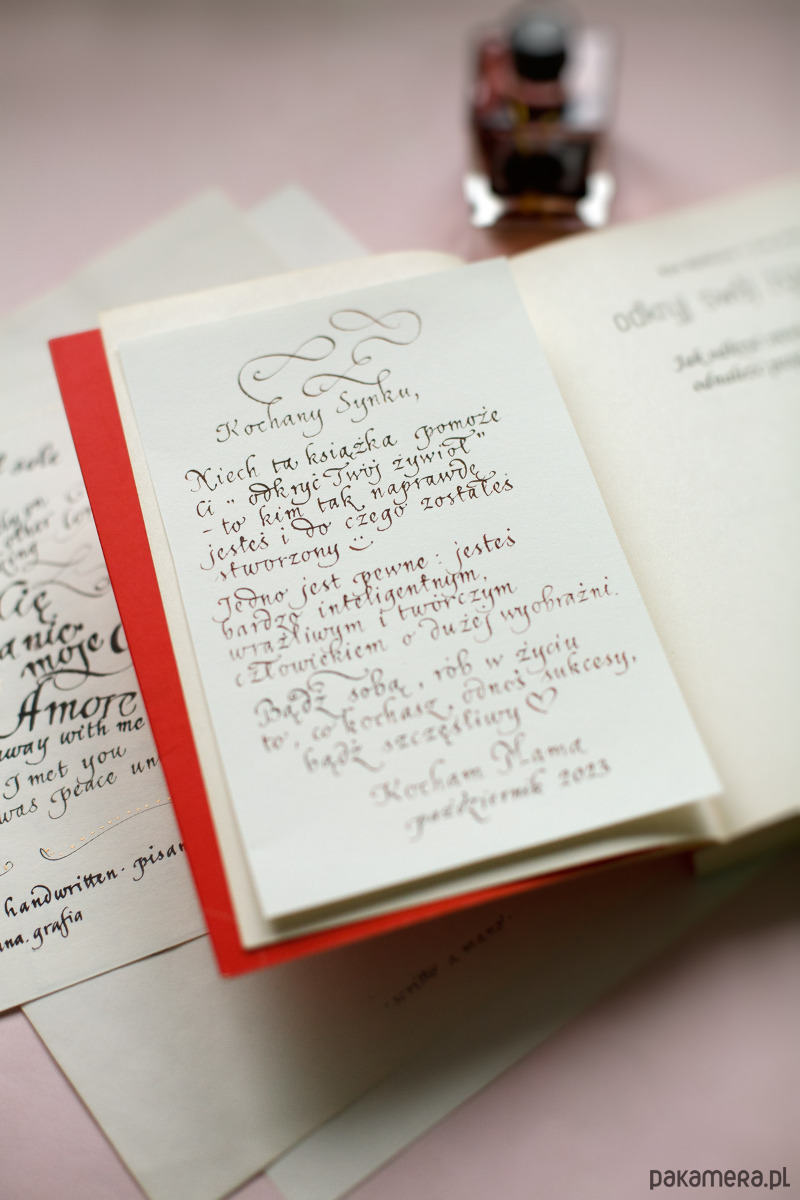 Kochany Synku,
Niech ta książka pomoże
Ci " odkryć Twój żywioł"
- to kim tak naprawdę
jesteś i do czego zostałeś
stworzony
Jedno jest pewne: jesteś
bardzo inteligentnym,
wrażliwym i twórczym
człowiekiem o dużej wyobraźni.
Bądź sobą, rób w życiu
to, co kochasz, odnoś sukcesy,
bądź szczęśliwy ♡
Kocham Mama
październik 2023
odkryj swój
Cię
moje
Amore
away with me
I met you
was peace
handwritten · pisan
na.grafia
pakamera.pl